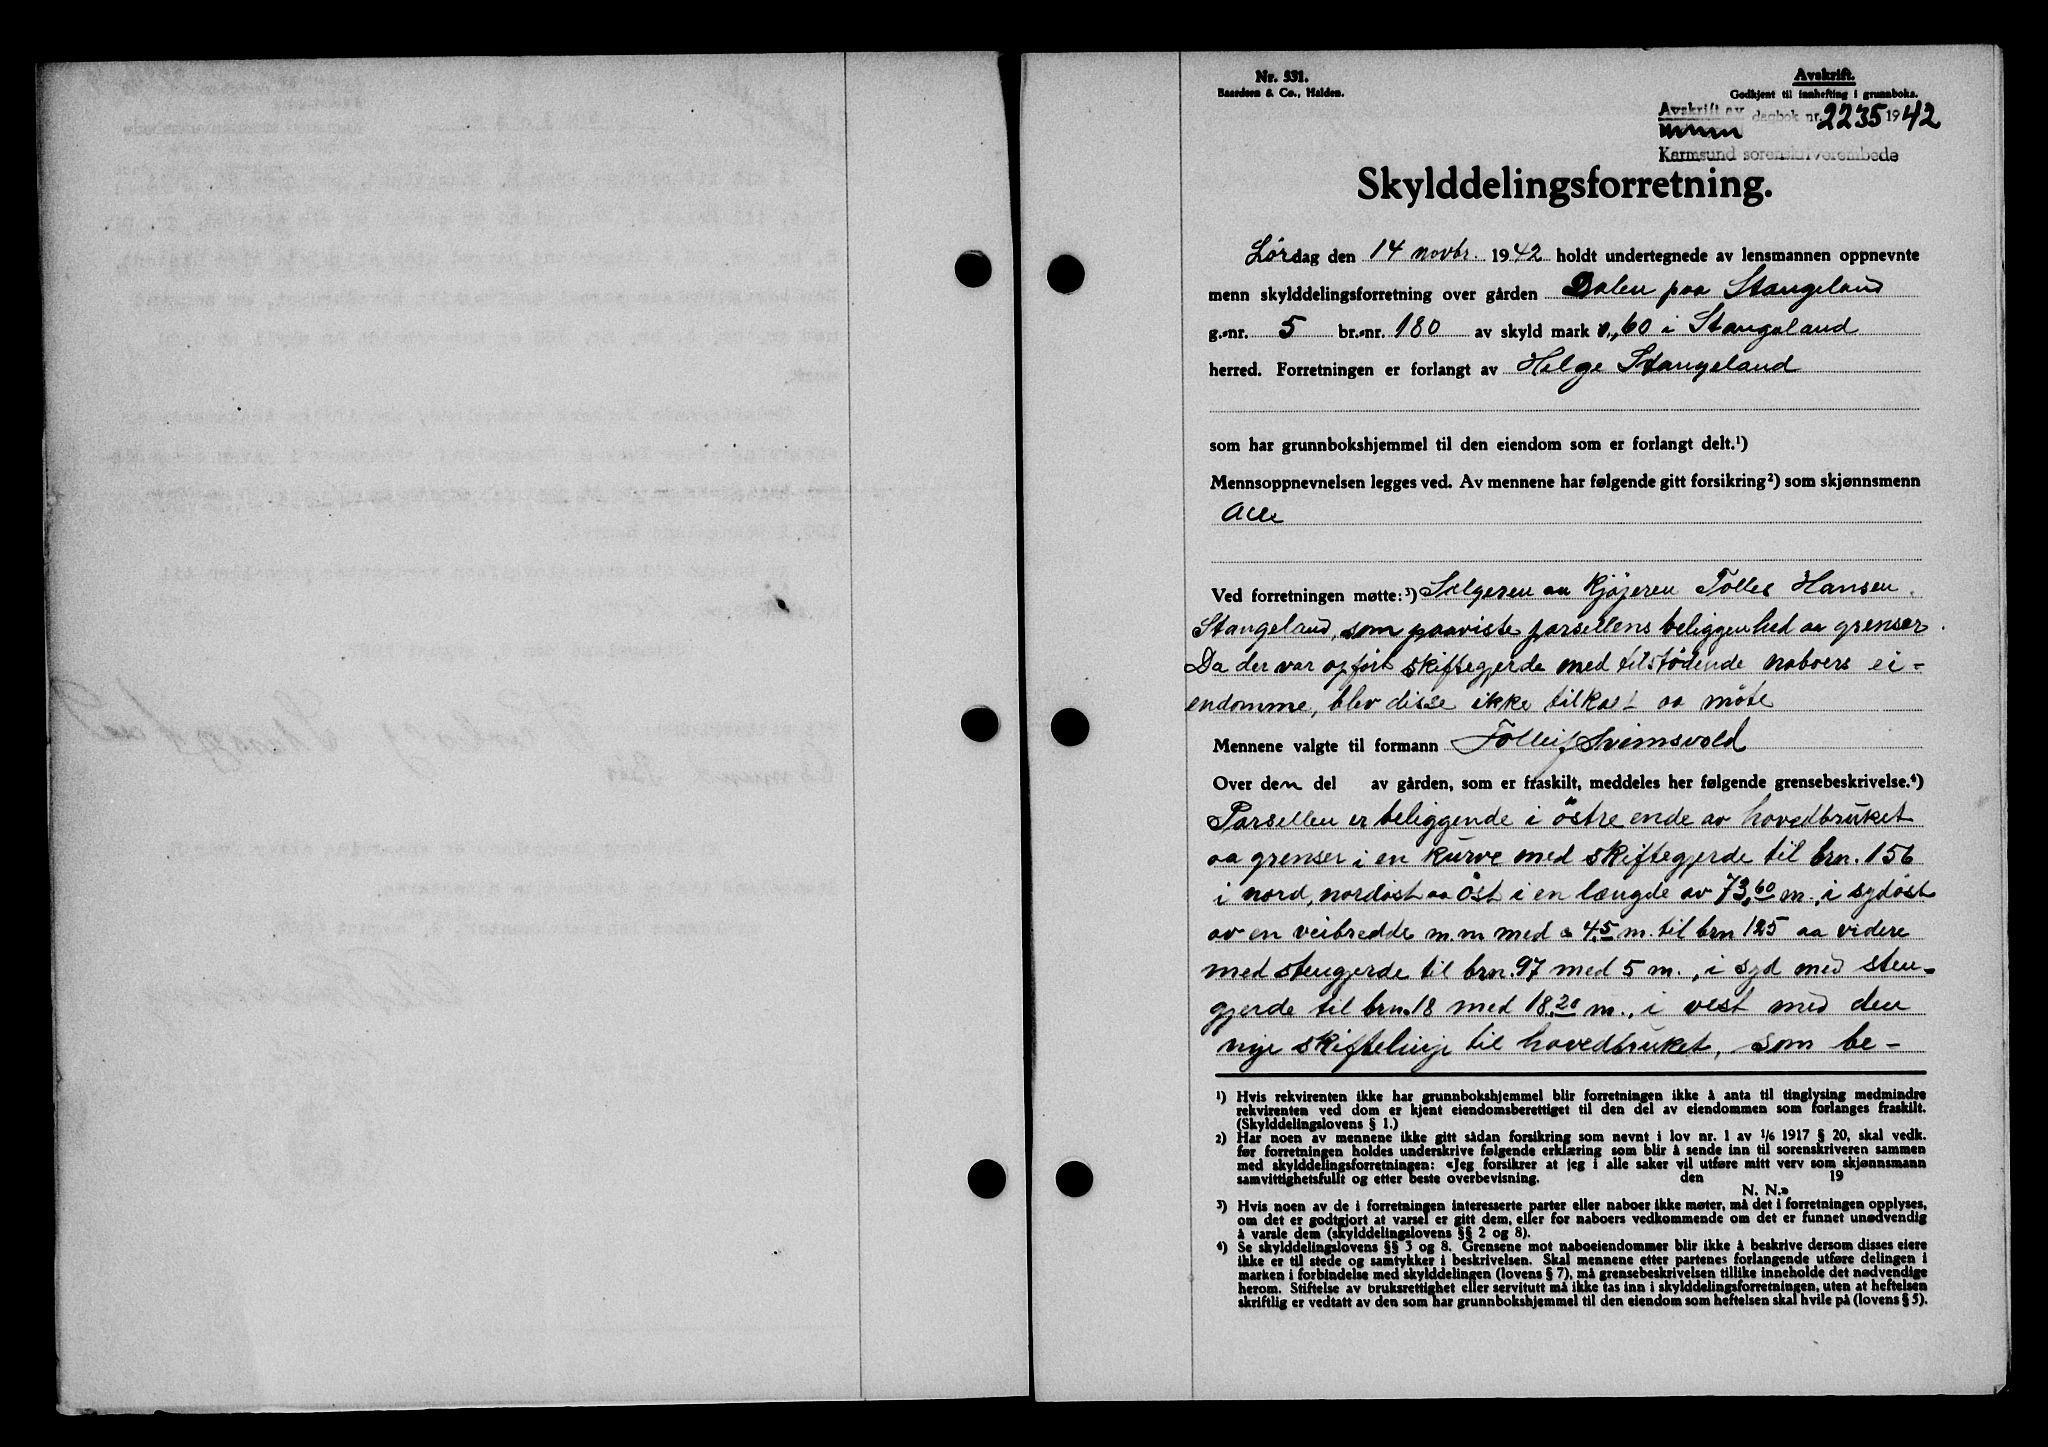 Nr. 531.
Baardsen & Co., Halden.
Avskrift.
Godkjent til innhefting i grunnboka.
Avskrift av
dagbok nr. 2235 1942
Karmsund sorenskriverembede
Skylddelingsforretning.
Lørdag den 14 novbr. 1942 holdt undertegnede av lensmannen oppnevnte
menn skylddelingsforretning over gården Dalen paa Stangeland
g.-nr. 5 br.-nr. 180 av skyld mark 0,60 i Stangeland
herred. Forretningen er forlangt av Helge Stangeland
som har grunnbokshjemmel til den eiendom som er forlangt delt.¹)
Mennsoppnevnelsen legges ved. Av mennene har følgende gitt forsikring²) som skjønnsmenn
Alle
Ved forretningen møtte:³) Selgeren aa Kjøperen Tolles Hansen
Stangeland, som paaviste parsellens beliggenhed aa grenser.
Da der var opført skiftegjerde med tilstødende naboers ei-
endomme, blev disse ikke tilkalt aa møte
Mennene valgte til formann Tolleif Svimsvold
Over den del av gården, som er fraskilt, meddeles her følgende grensebeskrivelse.⁴)
Parsellen er beliggende i østre ende av hovedbruket
aa grenser i en kurve med skiftegjerde til brn. 156
i nord, nordøst aa øst i en længde av 73,60 m., i sydøst
av en veibredde m.m med 4,5 m. til brn 125 aa videre
med stengjerde til brn. 97 med 5 m., i syd med sten-
gjerde til brn. 18 med 18,20 m., i vest med den
nye skiftelinje til hovedbruket, som be-
¹) Hvis rekvirenten ikke har grunnbokshjemmel blir forretningen ikke å anta til tinglysing medmindre
rekvirenten ved dom er kjent eiendomsberettiget til den del av eiendommen som forlanges fraskilt.
(Skylddelingslovens § 1.)
²) Har noen av mennene ikke gitt sådan forsikring som nevnt i lov nr. 1 av 1/6 1917 § 20, skal vedk.
før forretningen holdes underskrive følgende erklæring som blir å sende inn til sorenskriveren sammen
med skylddelingsforretningen: «Jeg forsikrer at jeg i alle saker vil utføre mitt verv som skjønnsmann
samvittighetsfullt og etter beste overbevisning. den 19
N. N.»
³) Hvis noen av de i forretningen interesserte parter eller naboer ikke møter, må det i forretningen opplyses,
om det er godtgjort at varsel er gitt dem, eller for naboers vedkommende om det er funnet unødvendig
å varsle dem (skylddelingslovens §§ 2 og 8).
⁴) Se skylddelingslovens §§ 3 og 8. Grensene mot naboeiendommer blir ikke å beskrive dersom disses eiere
ikke er til stede og samtykker i beskrivelsen. Skal mennene etter partenes forlangende utføre delingen i
marken i forbindelse med skylddelingen (lovens § 7), må grensebeskrivelsen tillike inneholde det nødvendige
herom. Stiftelse av bruksrettighet eller servitutt må ikke tas inn i skylddelingsforretningen, uten at heftelsen
skriftlig er vedtatt av den som har grunnbokshjemmel til den eiendom som heftelsen skal hvile på (lovens § 5).